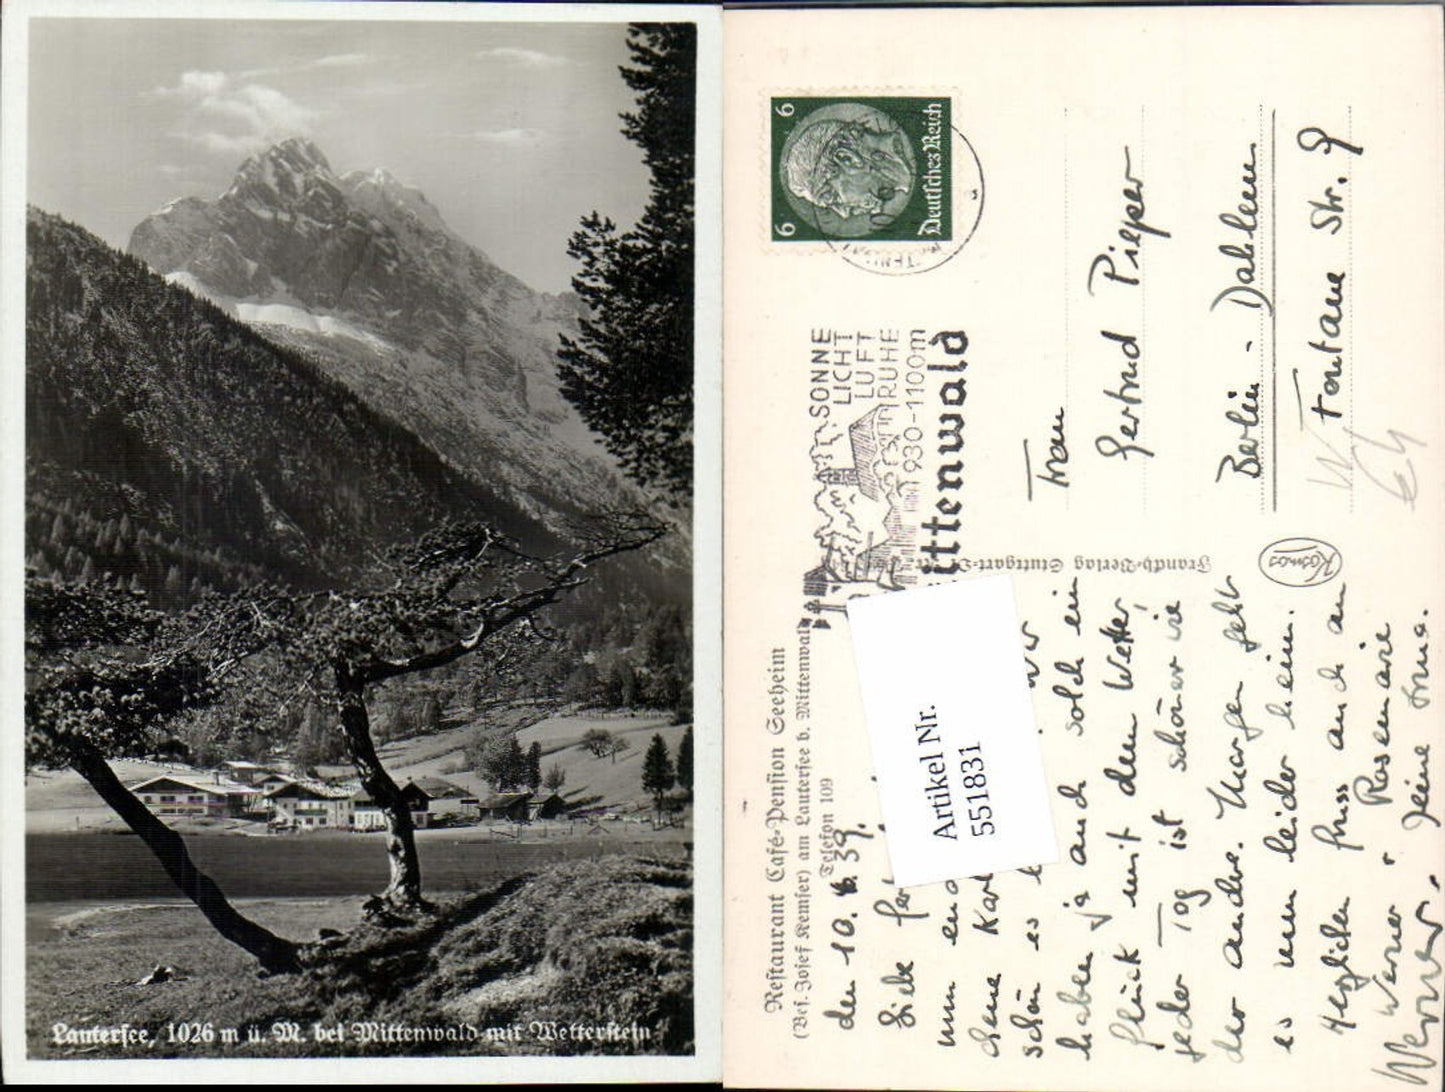 Lautersee, 1026 m ü. M. bei Mittenwald mit Wetterstein
Restaurant Café-Pension Seeheim
(Bes. Josef Kemser) am Lautersee b. Mittenwald
Telefon 109
6 6
Deutsches Reich
SONNE
LICHT
LUFT
RUHE
930-1100m
Mittenwald
Artikel Nr.
551831
den 10. 6. 39.
Liebe
nun
Karl
schön es
haben ja auch solch ein
Glück mit dem Wetter,
jeder Tag ist schöner wie
der andre. Morgen geht
es nun leider heim.
Herzlichen Gruss auch an
Werner + Rosemarie
Deine Irma.
Werner.
Frau
Gertrud Pieper
Berlin - Dahlem
Fontane Str. 9
Franckh-Verlag Stuttgart-O
Kosmos